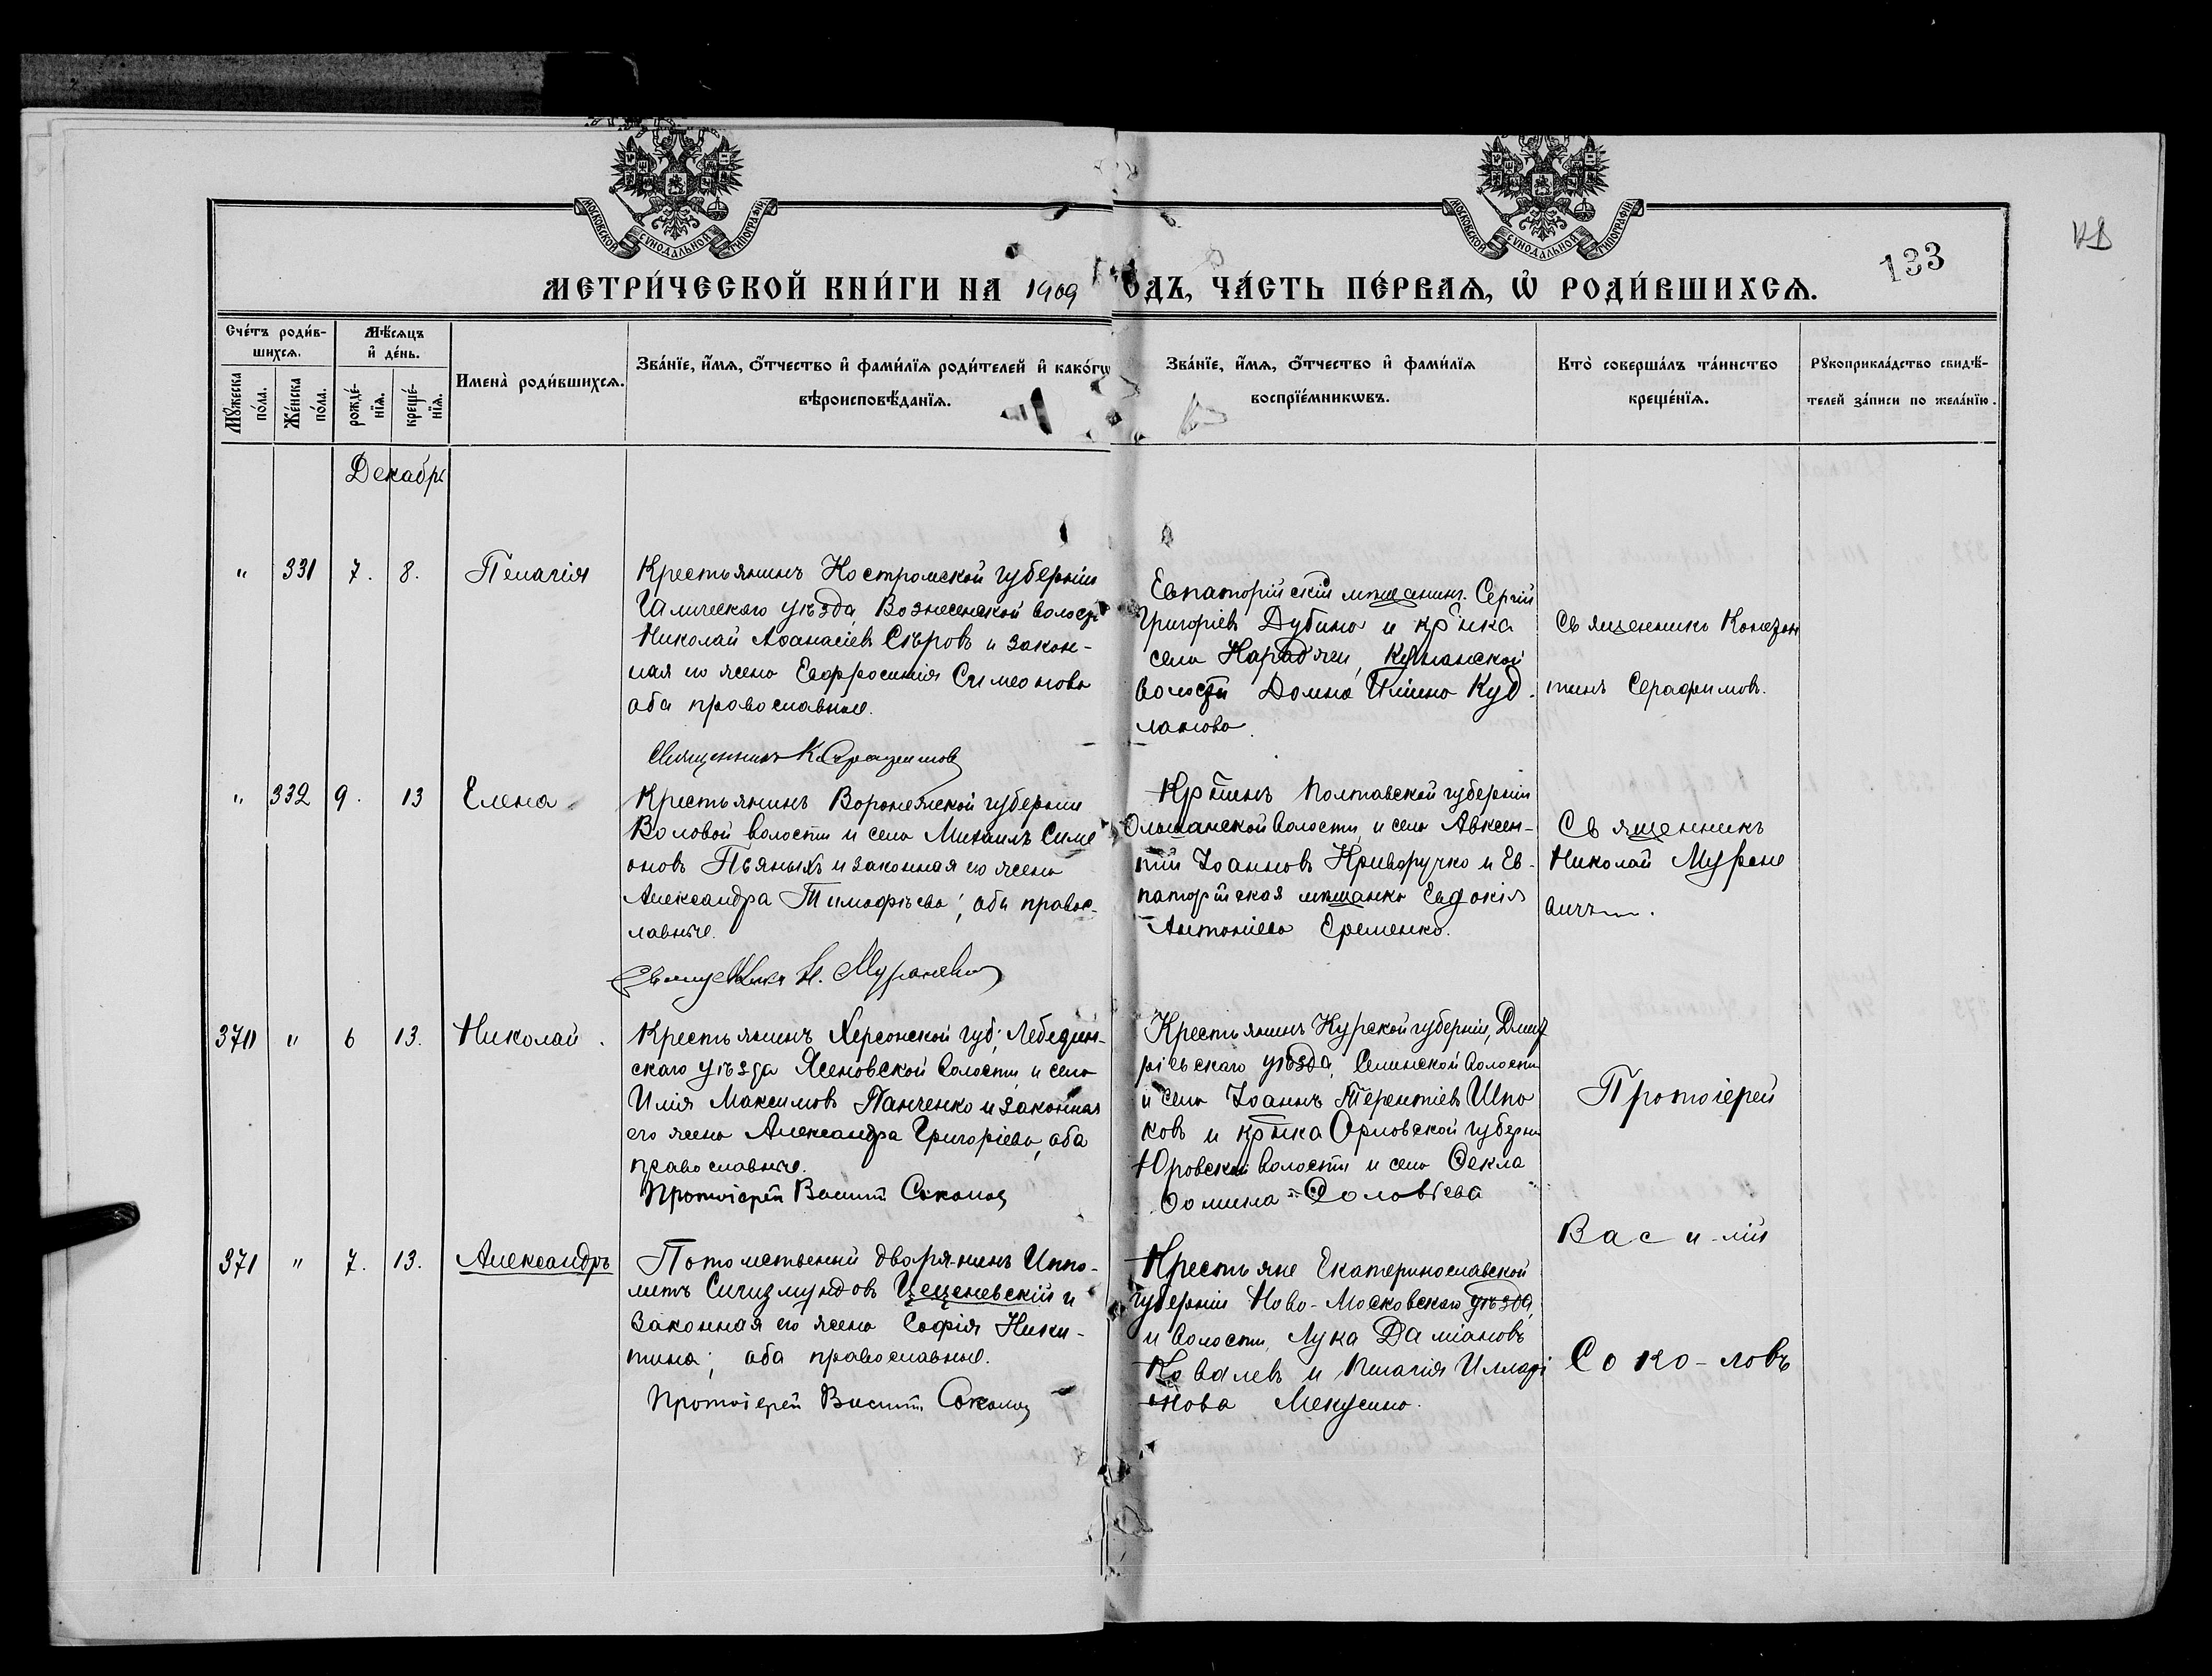 МОСКОВСКОЙ СѴНОДАЛЬНОЙ ТИПОГРАФІИ
МОСКОВСКОЙ СѴНОДАЛЬНОЙ ТИПОГРАФІИ
133
МЕТРИ́ЧЕСКОЙ КНИ́ГИ НА 1909 ГОДЪ, ЧА́СТЬ ПЕ́РВАѦ, Ѡ҆ РОДИ́ВШИХСѦ.
Сче́тъ роди́в-
шихсѧ.
Мꙋ́жеска
по́ла.
Же́нска
по́ла.
Мѣ́сѧцъ
и҆ де́нь.
рожде́-
нїѧ.
креще́-
нїѧ.
Имена̀ роди́вшихсѧ.
Зва́нїе, и҆́мѧ, ѻ҆́тчество и҆ фами́лїѧ роди́телей и҆ како́гѡ
вѣроисповѣ́данїѧ.
Зва́нїе, и҆́мѧ, ѻ҆́тчество и҆ фами́лїѧ
воспрїе́мникѡвъ.
Кто̀ соверша́лъ та́инство
креще́нїѧ.
Рꙋкоприкла́дство свидѣ́-
телей за́писи по жела́нїю.
Декабрь
" 331 7. 8. Пелагія
Крестьянинъ Костромской губерніи
Галическаго уѣзда, Вознесенской волости
Николай Аѳанасіевъ Сѣровъ и закон-
ная его жена Евфросинія Симеонова
оба православные.
Священникъ К. Серафимовъ
Евпаторійскій мѣщанинъ Сергій
Григоріевъ Дубина и кр-нка
села Караджи, Кунанской
волости Домна Ильина Куд-
ланова.
Священникъ Констан
тинъ Серафимовъ.
" 332 9. 13 Елена.
Крестьянинъ Воронежской губерніи
Воловой волости и села Михаилъ Симе
оновъ Пьяныхъ и законная его жена
Александра Тимофѣева; оба правос-
лавные.
Священникъ Н. Мураневичъ
Кр-нинъ Полтавской губерніи
Ольшанской волости и села Авксен-
тій Іоанновъ Криворучко и Ев-
паторійская мѣщанка Евдокія
Антоніева Еременко.
Священникъ
Николай Муране
вичъ.
370 " 6 13. Николай.
Крестьянинъ Херсонской губ; Лебедин-
скаго уѣзда Ясеновской волости и села
Илія Максимовъ Панченко и законная
его жена Александра Григоріева, оба
православные.
Протоіерей Василій Соколовъ
Крестьянинъ Курской губерніи, Дмит
ріевскаго уѣзда, Селинской волости
и села Іоаннъ Терентіевъ Шпо
ковъ и кр-нка Орловской губерніи
Юровской волости и села Ѳекла
Ѳомина Соловьева
Протоіерей
371 " 7. 13. Александръ
Потомственный дворянинъ Иппо-
литъ Сигизмундовъ Цеценевскій и
законная его жена Софія Ники-
тина; оба православные.
Протоіерей Василій Соколовъ
Крестьяне Екатеринославской
губерніи Ново-Московскаго уѣзда,
и волости, Лука Даміановъ
Ковалевъ и Пелагія Илларі
онова Мекусина.
Васи-лій
Соко-ловъ